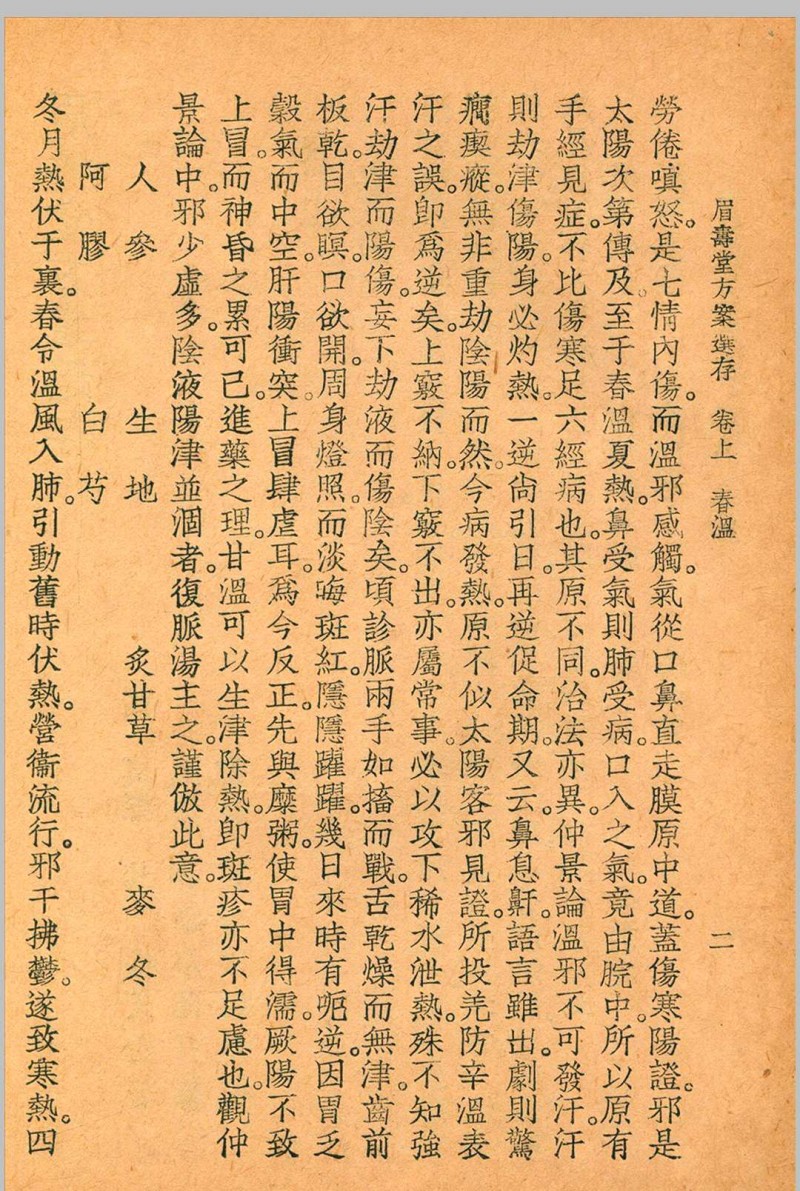 眉壽堂方案選存　卷上　春溫　二
勞倦嗔怒。是七情內傷。而溫邪感觸。氣從口鼻直走膜原中道。蓋傷寒陽證。邪是
太陽次第傳及。至于春溫夏熱。鼻受氣則肺受病。口入之氣。竟由脘中。所以原有
手經見症。不比傷寒足六經病也。其原不同。治法亦異。仲景論溫邪不可發汗。汗
則劫津傷陽。身必灼熱。一逆尙引日。再逆促命期。又云。鼻息鼾。語言雖出。劇則驚
癇瘈瘲。無非重劫陰陽而然。今病發熱。原不似太陽客邪見證。所投羌防辛溫表
汗之誤。卽爲逆矣。上竅不納。下竅不出。亦屬常事。必以攻下稀水泄熱。殊不知強
汗劫津而陽傷。妄下劫液而傷陰矣。頃診脈兩手如搐而戰。舌乾燥而無津。齒前
板乾。目欲瞑。口欲開。周身燈照。而淡晦斑紅。隱隱躍躍。幾日來時有呃逆。因胃乏
穀氣而中空。肝陽衝突。上冒肆虐耳。爲今反正。先與糜粥。使胃中得濡。厥陽不致
上冒。而神昏之累可已。進藥之理。甘溫可以生津除熱。卽斑疹亦不足慮也。觀仲
景論中。邪少虛多。陰液陽津並涸者。復脈湯主之。謹倣此意。
人參　生地　炙甘草　麥冬
阿膠　白芍
冬月熱伏于裏。春令溫風入肺。引動舊時伏熱。營衞流行。邪干拂鬱。遂致寒熱。四